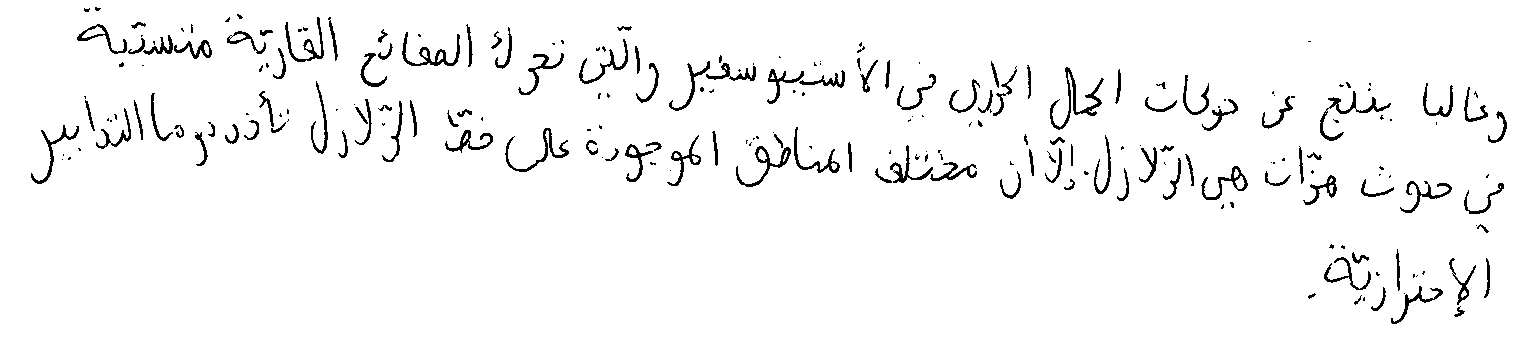 وغالبا ينتج عن حركات الحمل الحراري في الأستينوسفير والّتي تحرك الصفائح القاريّة متسبّبة
في حدوث هزّات هي الزّلازل. إلّا أن مختلف المناطق الموجودة على خطّ الزّلازل تأخذ دوما التدابير
الإحترازيّة.